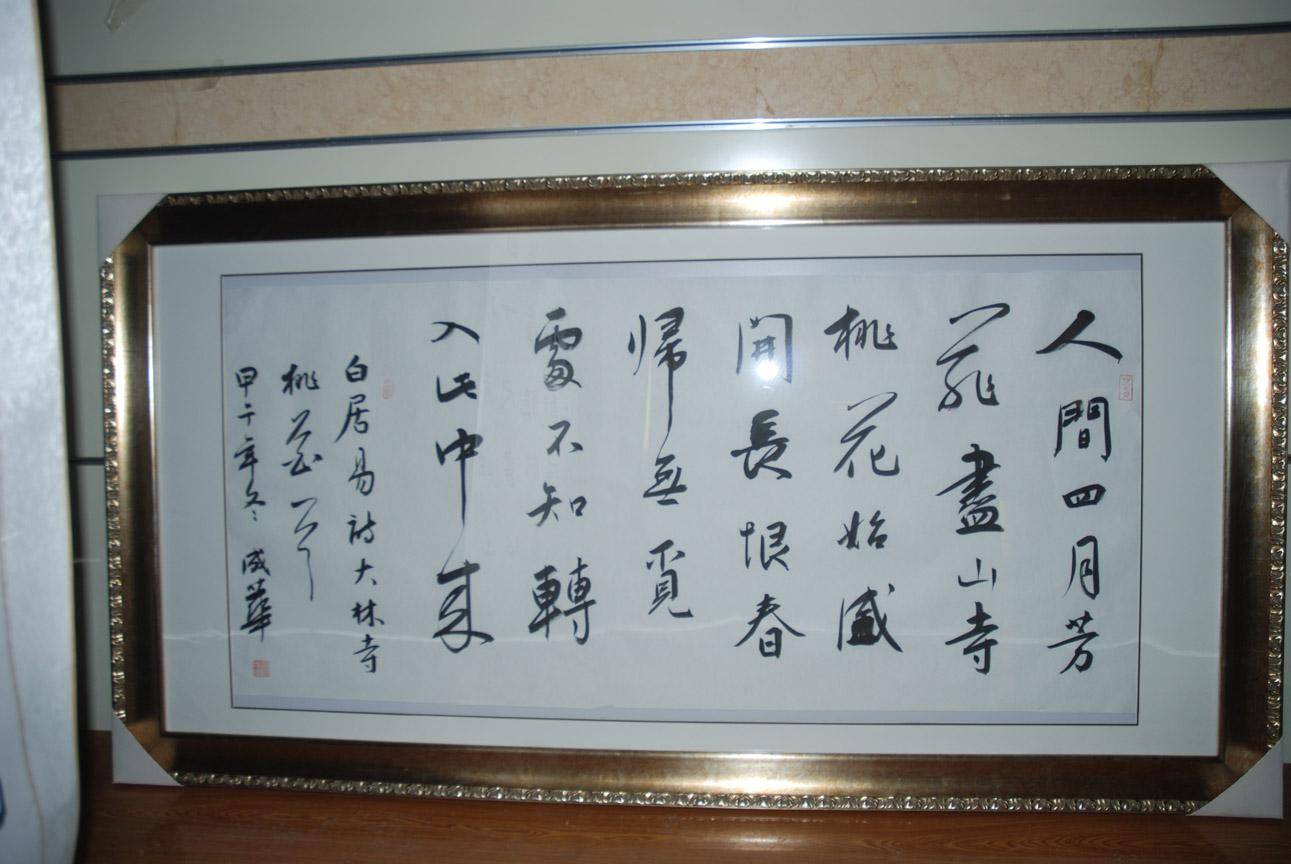 人間四月芳
菲盡山寺
桃花始盛
開長恨春
帰無覓
處不知轉
入此中來
白居易詩大林寺
桃花一首
甲午年冬 成華